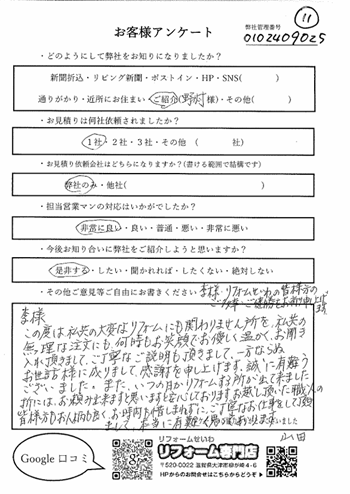 お客様アンケート
弊社管理番号
11
0102409025
・どのようにして弊社をお知りになりましたか？
新聞折込・リビング新聞・ポストイン・HP・SNS( )
通りがかり・近所にお住まい・ご紹介(野村様)・その他( )
・お見積りは何社依頼されましたか？
1社・2社・3社・その他 ( 社)
・お見積り依頼会社はどちらになりますか？(書ける範囲で結構です)
弊社のみ・他社( )
・担当営業マンの対応はいかがでしたか？
非常に良い・良い・普通・悪い・非常に悪い
・今後お知り合いに弊社をご紹介しようと思いますか？
是非する・したい・聞かれれば・したくない・絶対しない
・その他ご意見等ご自由にお書きください
李様、リフォームせいわの皆様方の
李様
この度は私共の大変なリフォームにも関わりません所を、私共の
無理な注文にも、何時もお笑顔でお優しく温かく、お聞き
入れ頂きまして、ご丁寧なご説明も頂きまして、一方ならぬ
お世話様に成りまして、感謝を申し上げます。誠に有難う
ございました。また、いつの日かリフォームする所が出て来ました
折には、お頼り出来ますと思いますと心じております。お越し頂いた職人の
皆様方もお人柄も良く、お時間も惜しまれずに、ご丁寧なお仕事をして頂き
まして、本当に有難く
山田
Google 口コミ
リフォームせいわ
リフォーム専門店
〒520-0022 滋賀県大津市柳が崎4-6
HPからのお問合せはこちらからどうぞ